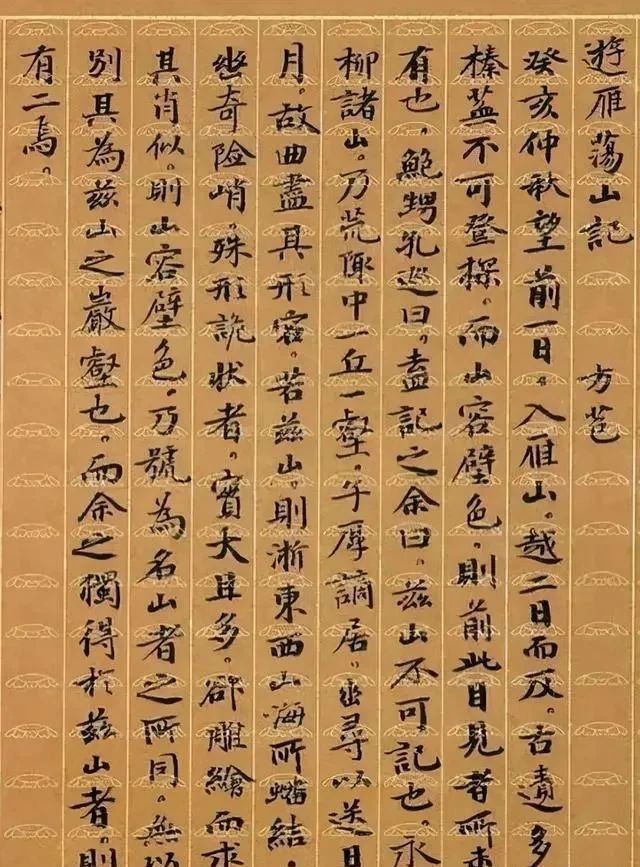 遊雁蕩山記 方苞
癸亥仲秋望前一日。入雁山。越二日而反。古蹟多
榛蕪不可登探。而山容壁色。則前此目見者所未
有也。鮑甥孔巡曰。盍記之余曰。茲山不可記也。永
柳諸山。乃荒陬中一丘一壑。子厚謫居。幽尋以送日
月。故曲盡其形容。若茲山。則浙東西山海所蟠結。
幽奇險峭。殊形詭狀者。實大且多。欲雕繪而求
其肖似。則山容壁色。乃號為名山者之所同。無以
別其為茲山之巖壑也。而余之獨得於茲山者。則
有二焉。